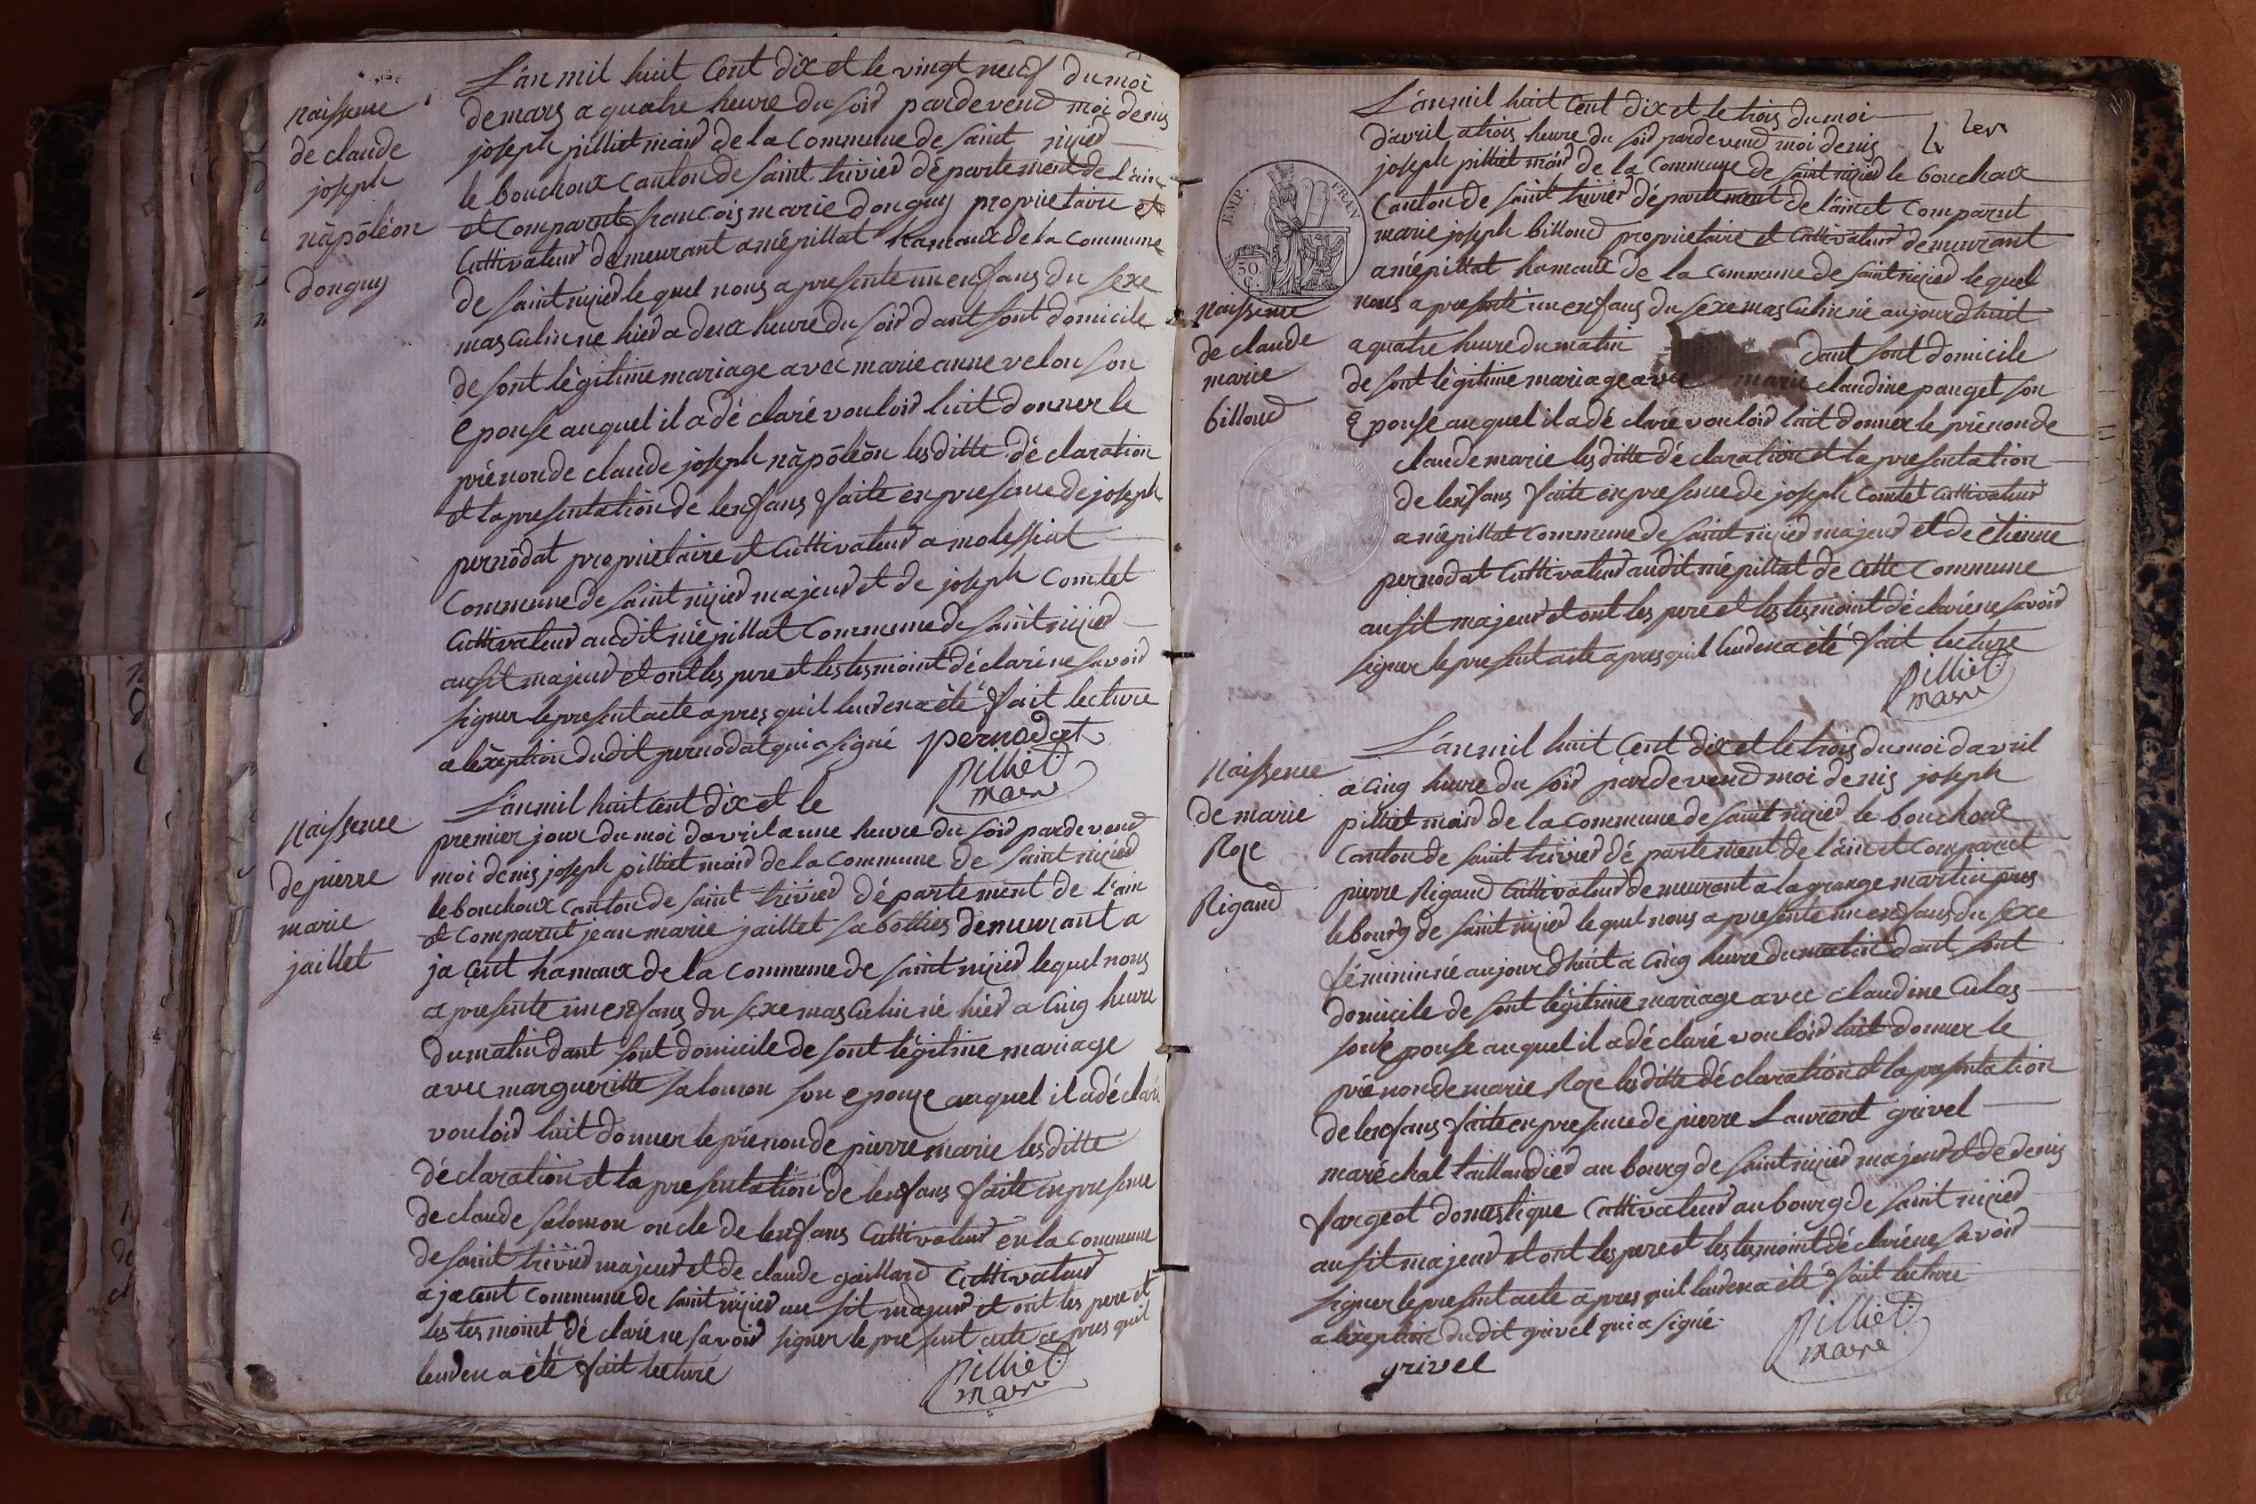 L'an mil huit Cent dix et le vingt neuf du moi
naissence
de claude
joseph
nāpōlēon
donguy
de mars a quatre heure du soir pardevend moi denis
joseph pilliet maire de la Commune de saint nizier
le bouchoux Canton de saint trivier département de l'ain
et Comparut francois marie donguy proprietaire et
Cultivateur demeurant a mépillat hamaux de la Commune
de saint nizier le quel nous a presente un enfans du sexe
masculin ne hier a deux heure du soir dant sont domicile
de sont légitime mariage avec marie anne velon son
epouse auquel il a dé claré vouloir luit donner le
prénon de claude joseph nāpōlēōn les ditte déclaration
et la presentation de lenfans faite en presence de joseph
pernodat proprietaire et Cultivateur a molessiat
Commune de saint nizier majeur et de joseph Comtet
Cultivateur audit mépillat Commune de saint nizier
ausit majeur et ont les pere et les tesmoint déclaré ne savoir
signer le present acte apres quil leur en a été fait lecture
a lexeption dudit pernodat qui a signé pernodat
pilliet
maire
L'an mil huit Cent dix et le
naissence
de pierre
marie
jaillet
premier jour du moi davril a une heure du soir pardevend
moi denis joseph pilliat maire de la Commune de saint nizier
le bouchoux Canton de saint trivier département de l'ain
et Comparut jean marie jaillet sabottier demeurant a
ja Cent hamaux de la Commune de saint nizier lequel nous
a presente un enfans du sexe masculin né hier a Cinq heure
du matin dant sont domicile de sont légitime mariage
avec margueritte salomon son epouze auquel il a déclaré
vouloir luit donner le prénon de pierre marie les ditte
déclaration et la presentation de lenfans faite en presence
de claude salomon oncle de lenfans Cultivateur en la Commune
de saint trivier majeur et de claude gaillard Cultivateur
a jacent Commune de saint nizier au sit majeur et ont les pere et
les tesmoint déclaré ne savoir signer le present acte apres quil
leur en a été fait lecture
pilliet
maire
L'an mil huit Cent dix et le trois du moi
d'avril a trois heure du soir pardevend moi denis
joseph pilliet maire de la Commune de saint nizier le bouchoux
Canton de saint trivier département de l'ain et Comparut
marie joseph billoud proprietaire et Cultivateur demeurant
a mépillat hamaux de la Commune de saint nizier le quel
EMP. FRAN
50.
C.
naissence
de claude
marie
billoud
nous a presenté un enfans du sexe masculin né aujourdhuit
a quatre heure du matin dant sont domicile
de sont légitime mariage avec marie claudine panget son
épouse auquel il a dé claré vouloir luit donner le prénon de
claude marie les ditte déclaration et la presentation
de lenfans faite en presence de joseph Comtet Cultivateur
a mépillat Commune de saint nizier majeur et de étienne
pernodat Cultivateur audit mépillat de Cette Commune
ausit majeur et ont les pere et les tesmoint déclaré ne savoir
signer le present acte apres quil leur en a été fait lecture
pilliet
maire
L'an mil huit Cent dix et le trois du moi davril
naissence
de marie
Roze
Rigaud
a Cinq heure du soir pardevend moi denis joseph
pilliet maire de la Commune de saint nizier le bouchoux
Canton de saint trivier département de l'ain et Comparut
pierre Rigaud Cultivateur demeurant a la grange martin pres
le bourg de saint nizier le quel nous a presente un enfans du sexe
féminin né aujourdhuit a Cinq heure du matin dant sont
domicile de sont légitime mariage avec claudine Culas
son épouse auquel il a déclaré vouloir luit donner le
prénon de marie Roze les ditte déclaration et la presentation
de lenfans faite en presence de pierre Laurent grivel
maréchal taillandier au bourg de saint nizier majeur et de denis
fargeot domestique Cultivateur au bourg de saint nizier
ausit majeur et ont les pere et les tesmoint déclaré ne savoir
signer le present acte apres quil leur en a été fait lecture
a lexeption du dit grivel qui a signé
grivel
pilliet
maire